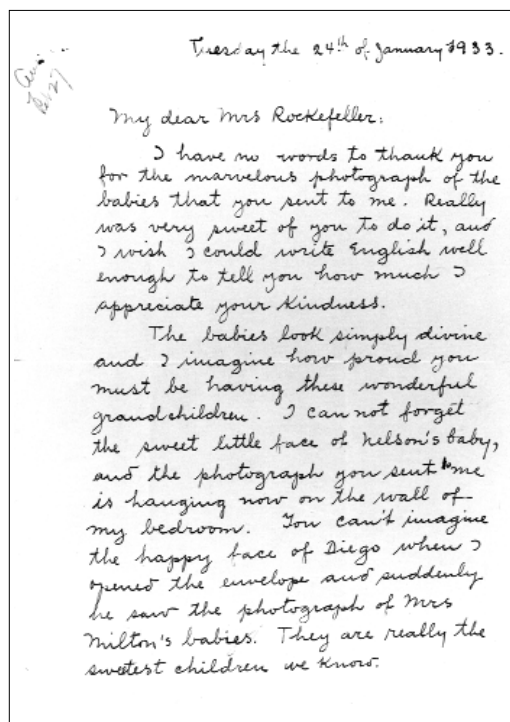 Tuesday the 24th of January 1933.
My dear Mrs Rockefeller:
I have no words to thank you
for the marvelous photograph of the
babies that you sent to me. Really
was very sweet of you to do it, and
I wish I could write English well
enough to tell you how much I
appreciate your kindness.
The babies look simply divine
and I imagine how proud you
must be having these wonderful
grandchildren. I can not forget
the sweet little face of Nelson's baby,
and the photograph you sent to me
is hanging now on the wall of
my bedroom. You can't imagine
the happy face of Diego when I
opened the envelope and suddenly
he saw the photograph of Mrs
Milton's babies. They are really the
sweetest children we know.